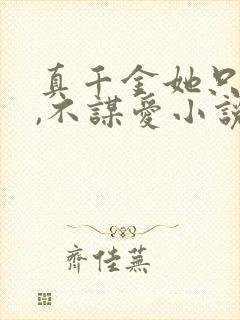 真千金她只
,不謀愛小說
齊佳蕪